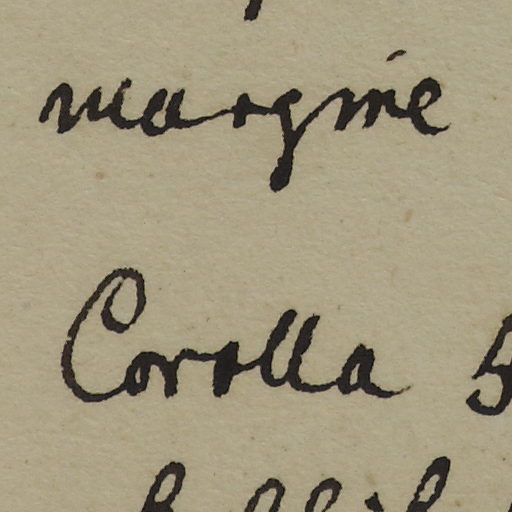 margine
Corolla 5